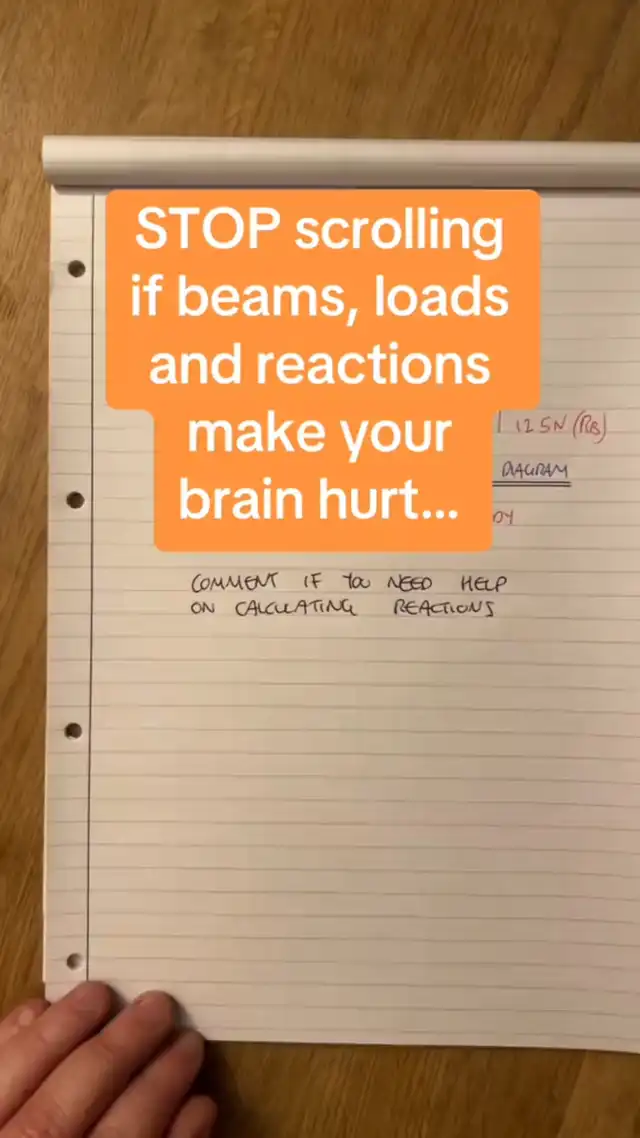 STOP scrolling
if beams, loads
and reactions
make your
brain hurt...
12.5N (RB)
DIAGRAM
COMMENT IF YOU NEED HELP
ON CALCULATING REACTIONS